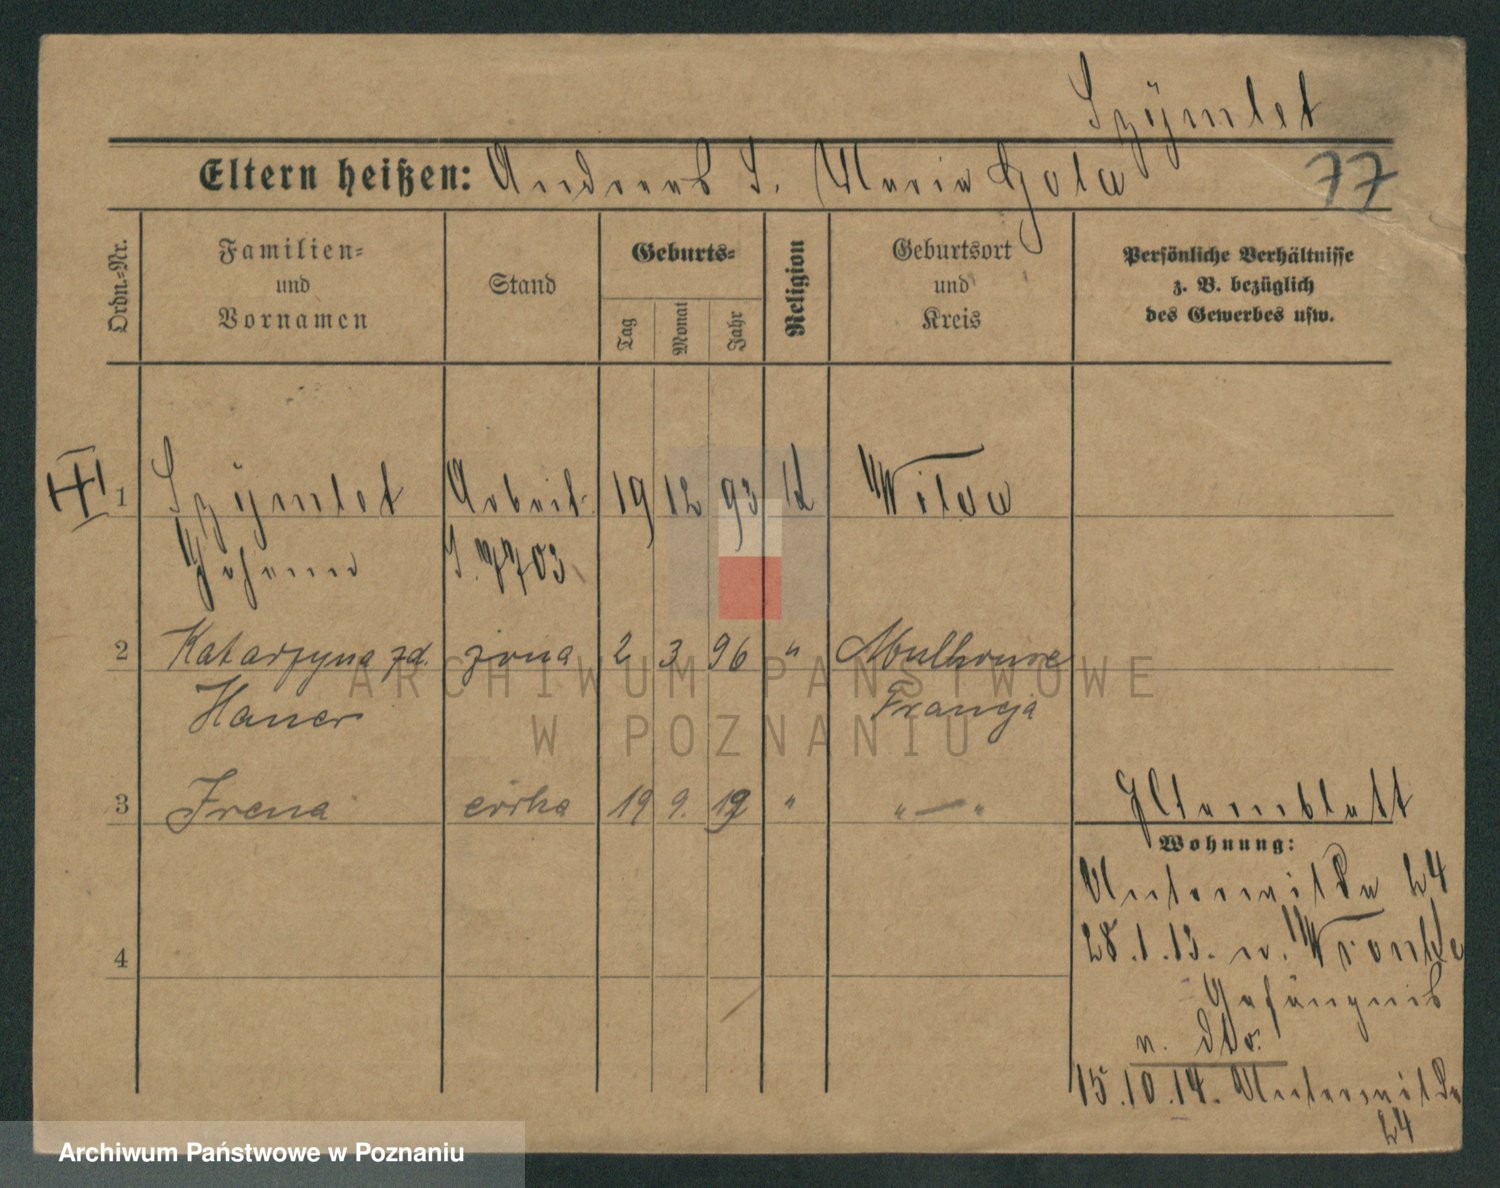 Szÿmlet
Eltern heißen: Andreas S. Maria Gola
77
Ordn.-Nr.
Familien-
und
Vornamen
Stand
Geburts-
Tag
Monat
Jahr
Religion
Geburtsort
und
Kreis
Persönliche Verhältnisse
z. B. bezüglich
des Gewerbes usw.
III 1 Szÿmlet Arbeit. 19 12 93 k Wilda
Johann S. 7703
2 Katarzyna zd. żona 2 3 96 " Mulhouse
Haner Francja
3 Irena córka 19 9. 19 " " — "
4
Elternblatt
Wohnung:
Unterwilda 24
28.1.13. n. Wronke
Gefängnis
v. dto.
15.10.14. Unterwilda
24
ARCHIWUM PAŃSTWOWE
W POZNANIU
Archiwum Państwowe w Poznaniu